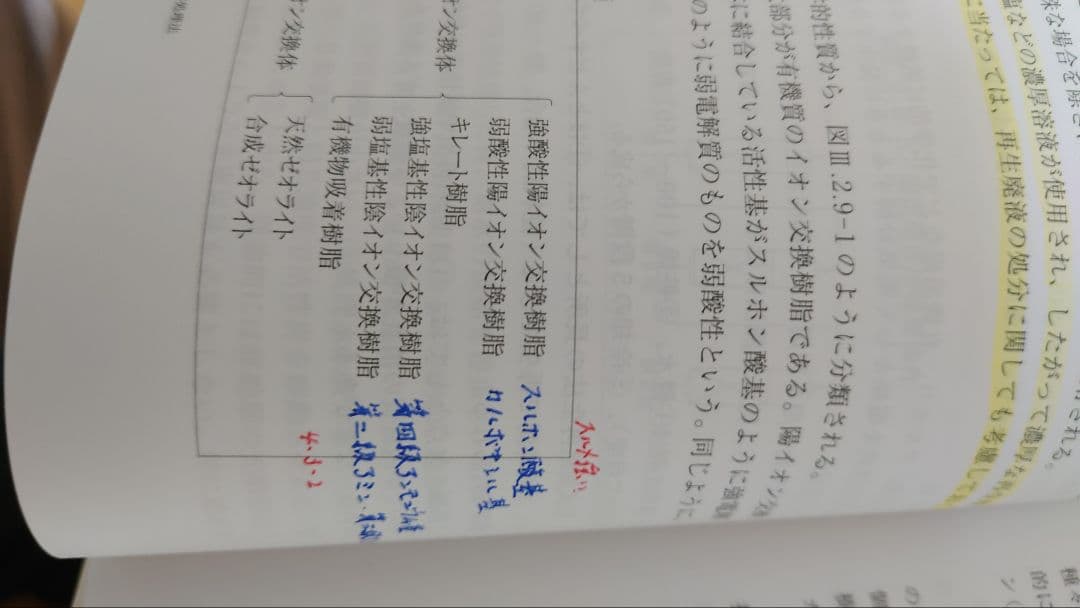 殊な場合を除き
塩などの濃厚溶液が使用され、したがって濃厚な
に当たっては、再生廃液の処分に関しても考慮して
される。
的性質から、図Ⅲ.2.9-1のように分類される。
部分が有機質のイオン交換樹脂である。陽イオン交
に結合している活性基がスルホン酸基のように強電
のように弱電解質のものを弱酸性という。同じように
スルメ強い
強酸性陽イオン交換樹脂 スルホン酸基
弱酸性陽イオン交換樹脂 カルボキシル基
キレート樹脂
オン交換体
強塩基性陰イオン交換樹脂 第四級アンモニウム
弱塩基性陰イオン交換樹脂 第二級アミン・第
有機物吸着樹脂
4・3・2
オン交換体
天然ゼオライト
合成ゼオライト
処理法
種々
的に
ン
の